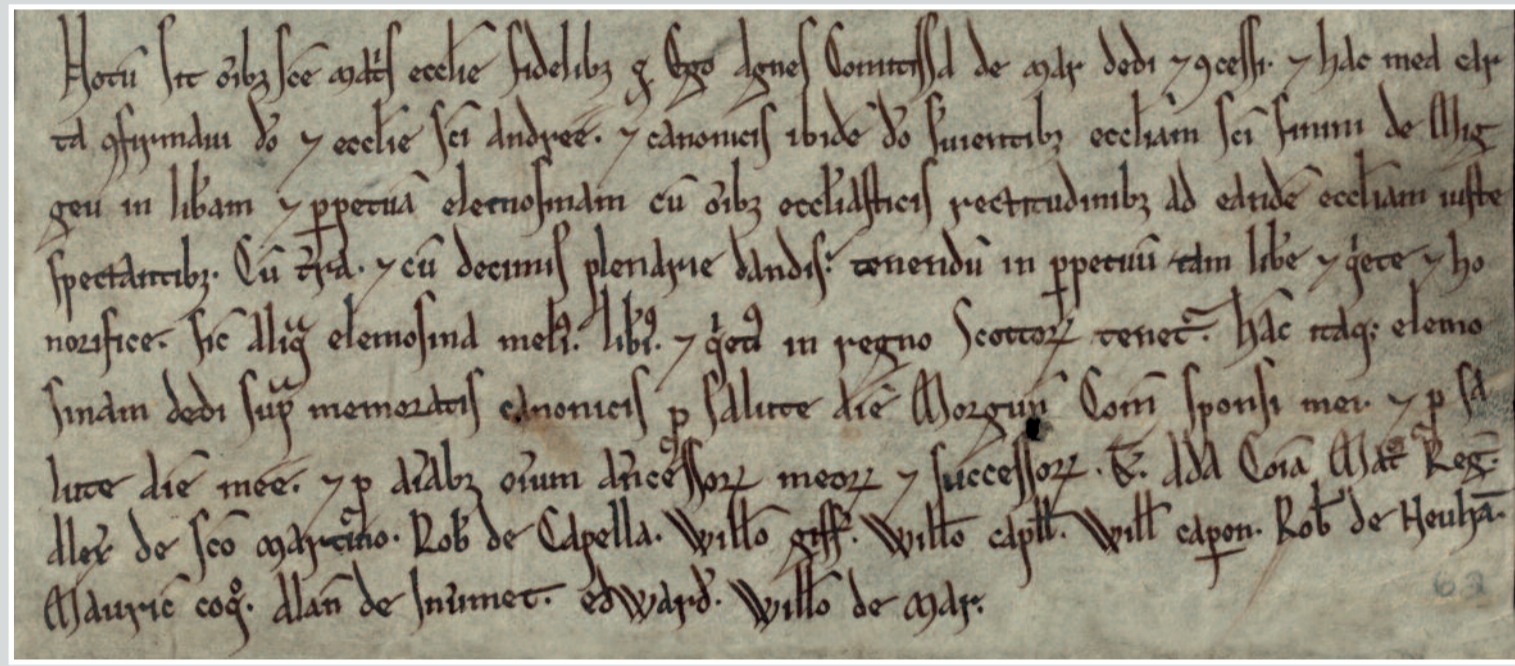 Notū sit oīb; scē matris ecclīe fidelib; q̄ Ego Agnes Comitissa de mar dedi ⁊ ꝯcessi. ⁊ hac mea car
ta ꝯfirmaui dō ⁊ ecclīe scī andreę. ⁊ canonicis ibidē dō s̄uientib; eccliam scī de Mig
geu in lib̄am ⁊ ꝑpetuā elemosinam cū oīb; eccliasticis rectitudinib; ad eandē eccliam iuste
spectantib;. Cū t̄ra. ⁊ cū decimis plenarie dandis. tenendū in ꝑpetuū tam lib̄e ⁊ qͥete ⁊ ho
norifice. sic̄ aliqͣ elemosina meliꝰ. lib̄iꝰ. ⁊ qͥetiꝰ in regno Scottoꝝ tenet᷑. hāc itaq; elemo
sinam dedi supͣ memoratis canonicis ꝓ salute aīe Morgun̄ Com̄ sponsi mei. ⁊ ꝓ sa
lute aīe meę. ⁊ ꝓ aīab; oīum ān̄cessoꝝ meoꝝ ⁊ successoꝝ. T̄. Ada Coīa Mat̄ Reḡ.
Alex̄ de scō martino. Rob̄ de Capella. Willō giff̄. Willō capll̄. Will̄ capon. Rob̄ de Neuhā.
Mauric̄ coqͦ. Alan̄ de edward̄. Willō de mar.
63